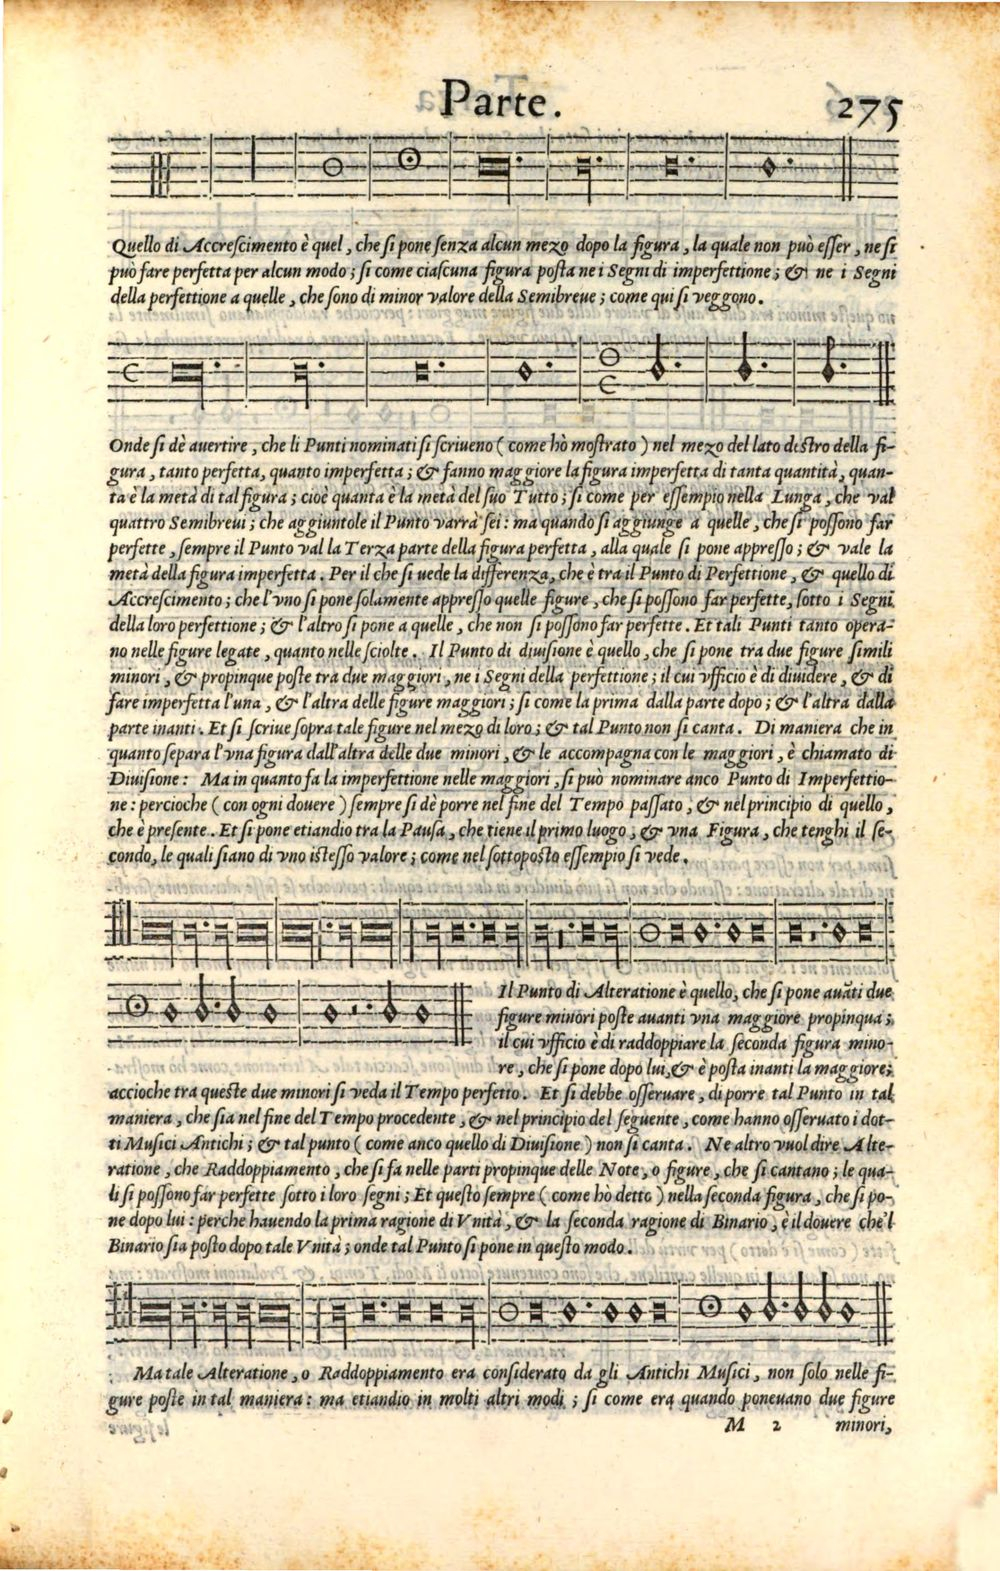 Parte. 275
Quello di Accrescimento è quel, che si pone senza alcun mezo dopo la figura, la quale non può esser, ne si
può fare perfetta per alcun modo; si come ciascuna figura posta ne i Segni di imperfettione; & ne i Segni
della perfettione a quelle, che sono di minor valore della Semibreue; come qui si veggono.
Onde si dè auertire, che li Punti nominati si scriueno (come hò mostrato) nel mezo del lato destro della fi-
gura, tanto perfetta, quanto imperfetta; & fanno maggiore la figura imperfetta di tanta quantità, quan-
ta è la metà di tal figura; cioè quanta è la metà del suo Tutto; si come per essempio nella Lunga, che val
quattro Semibreui; che aggiuntole il Punto varrà sei: ma quando si aggiunge a quelle, che si possono far
perfette, sempre il Punto val la Terza parte della figura perfetta, alla quale si pone appresso; & vale la
metà della figura imperfetta. Per il che si vede la differenza, che è tra il Punto di Perfettione, & quello di
Accrescimento; che l'vno si pone solamente appresso quelle figure, che si possono far perfette, sotto i Segni
della loro perfettione; & l'altro si pone a quelle, che non si possono far perfette. Et tali Punti tanto opera-
no nelle figure legate, quanto nelle sciolte. Il Punto di diuisione è quello, che si pone tra due figure simili
minori, & propinque poste tra due maggiori, ne i Segni della perfettione; il cui vfficio è di diuidere, & di
fare imperfetta l'una, & l'altra delle figure maggiori; si come la prima dalla parte dopo; & l'altra dalla
parte inanti. Et si scriue sopra tale figure nel mezo di loro; & tal Punto non si canta. Di maniera che in
quanto separa l'vna figura dall'altra delle due minori, & le accompagna con le maggiori, è chiamato di
Diuisione: Ma in quanto fa la imperfettione nelle maggiori, si può nominare anco Punto di Imperfettio-
ne: percioche (con ogni douere) sempre si dè porre nel fine del Tempo passato, & nel principio di quello,
che è presente. Et si pone etiandio tra la Pausa, che tiene il primo luogo, & vna Figura, che tenghi il se-
condo, le quali siano di vno istesso valore; come nel sottoposto essempio si vede.
Il Punto di Alteratione è quello, che si pone auãti due
figure minori poste auanti vna maggiore propinqua;
il cui vfficio è di raddoppiare la seconda figura mino-
re, che si pone dopo lui, & è posta inanti la maggiore;
accioche tra queste due minori si veda il Tempo perfetto. Et si debbe osseruare, di porre tal Punto in tal
maniera, che sia nel fine del Tempo procedente, & nel principio del seguente, come hanno osseruato i dot-
ti Musici Antichi; & tal punto (come anco quello di Diuisione) non si canta. Ne altro vuol dire Alte-
ratione, che Raddoppiamento, che si fa nelle parti propinque delle Note, o figure, che si cantano; le qua-
li si possono far perfette sotto i loro segni; Et questo sempre (come hò detto) nella seconda figura, che si po-
ne dopo lui: perche hauendo la prima ragione di Vnità, & la seconda ragione di Binario, è il douere che'l
Binario sia posto dopo tale Vnità; onde tal Punto si pone in questo modo.
Ma tale Alteratione, o Raddoppiamento era considerato da gli Antichi Musici, non solo nelle fi-
gure poste in tal maniera: ma etiandio in molti altri modi; si come era quando poneuano due figure
M 2 minori,